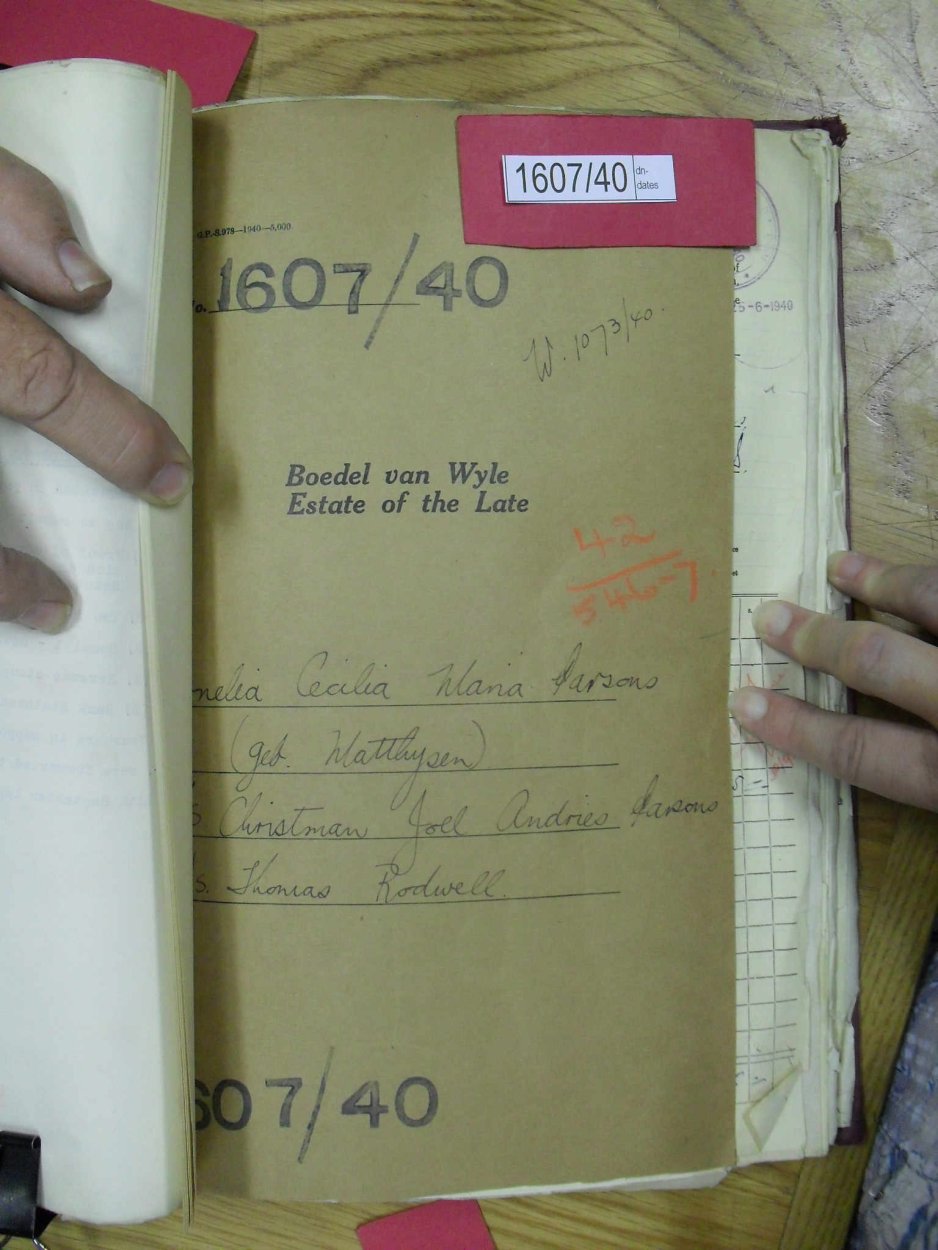 1607/40 dn-dates
G.P.-S.978—1940—5,000.
o. 1607/40
W. 1073/40.
5-6-1940
Boedel van Wyle
Estate of the Late
42
546-7
nelia Cecilia Maria Parsons
(geb. Matthysen)
S. Christman Joel Andries Parsons
s. Thomas Rodwell.
607/40